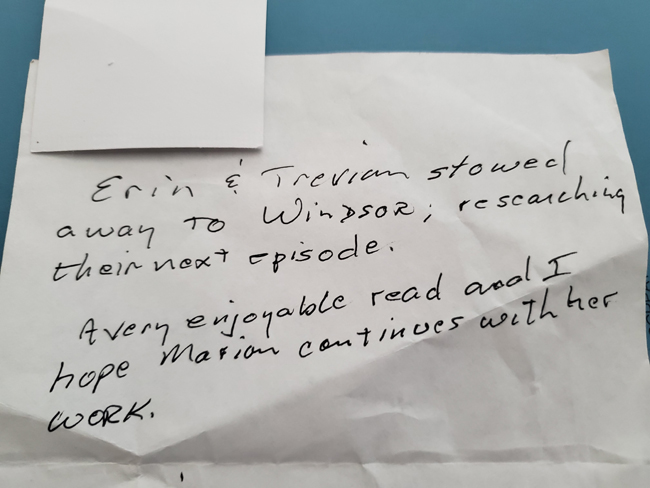 Erin & Trevian stowed
away to Windsor; researching
their next episode.
A very enjoyable read and I
hope Marion continues with her
work.